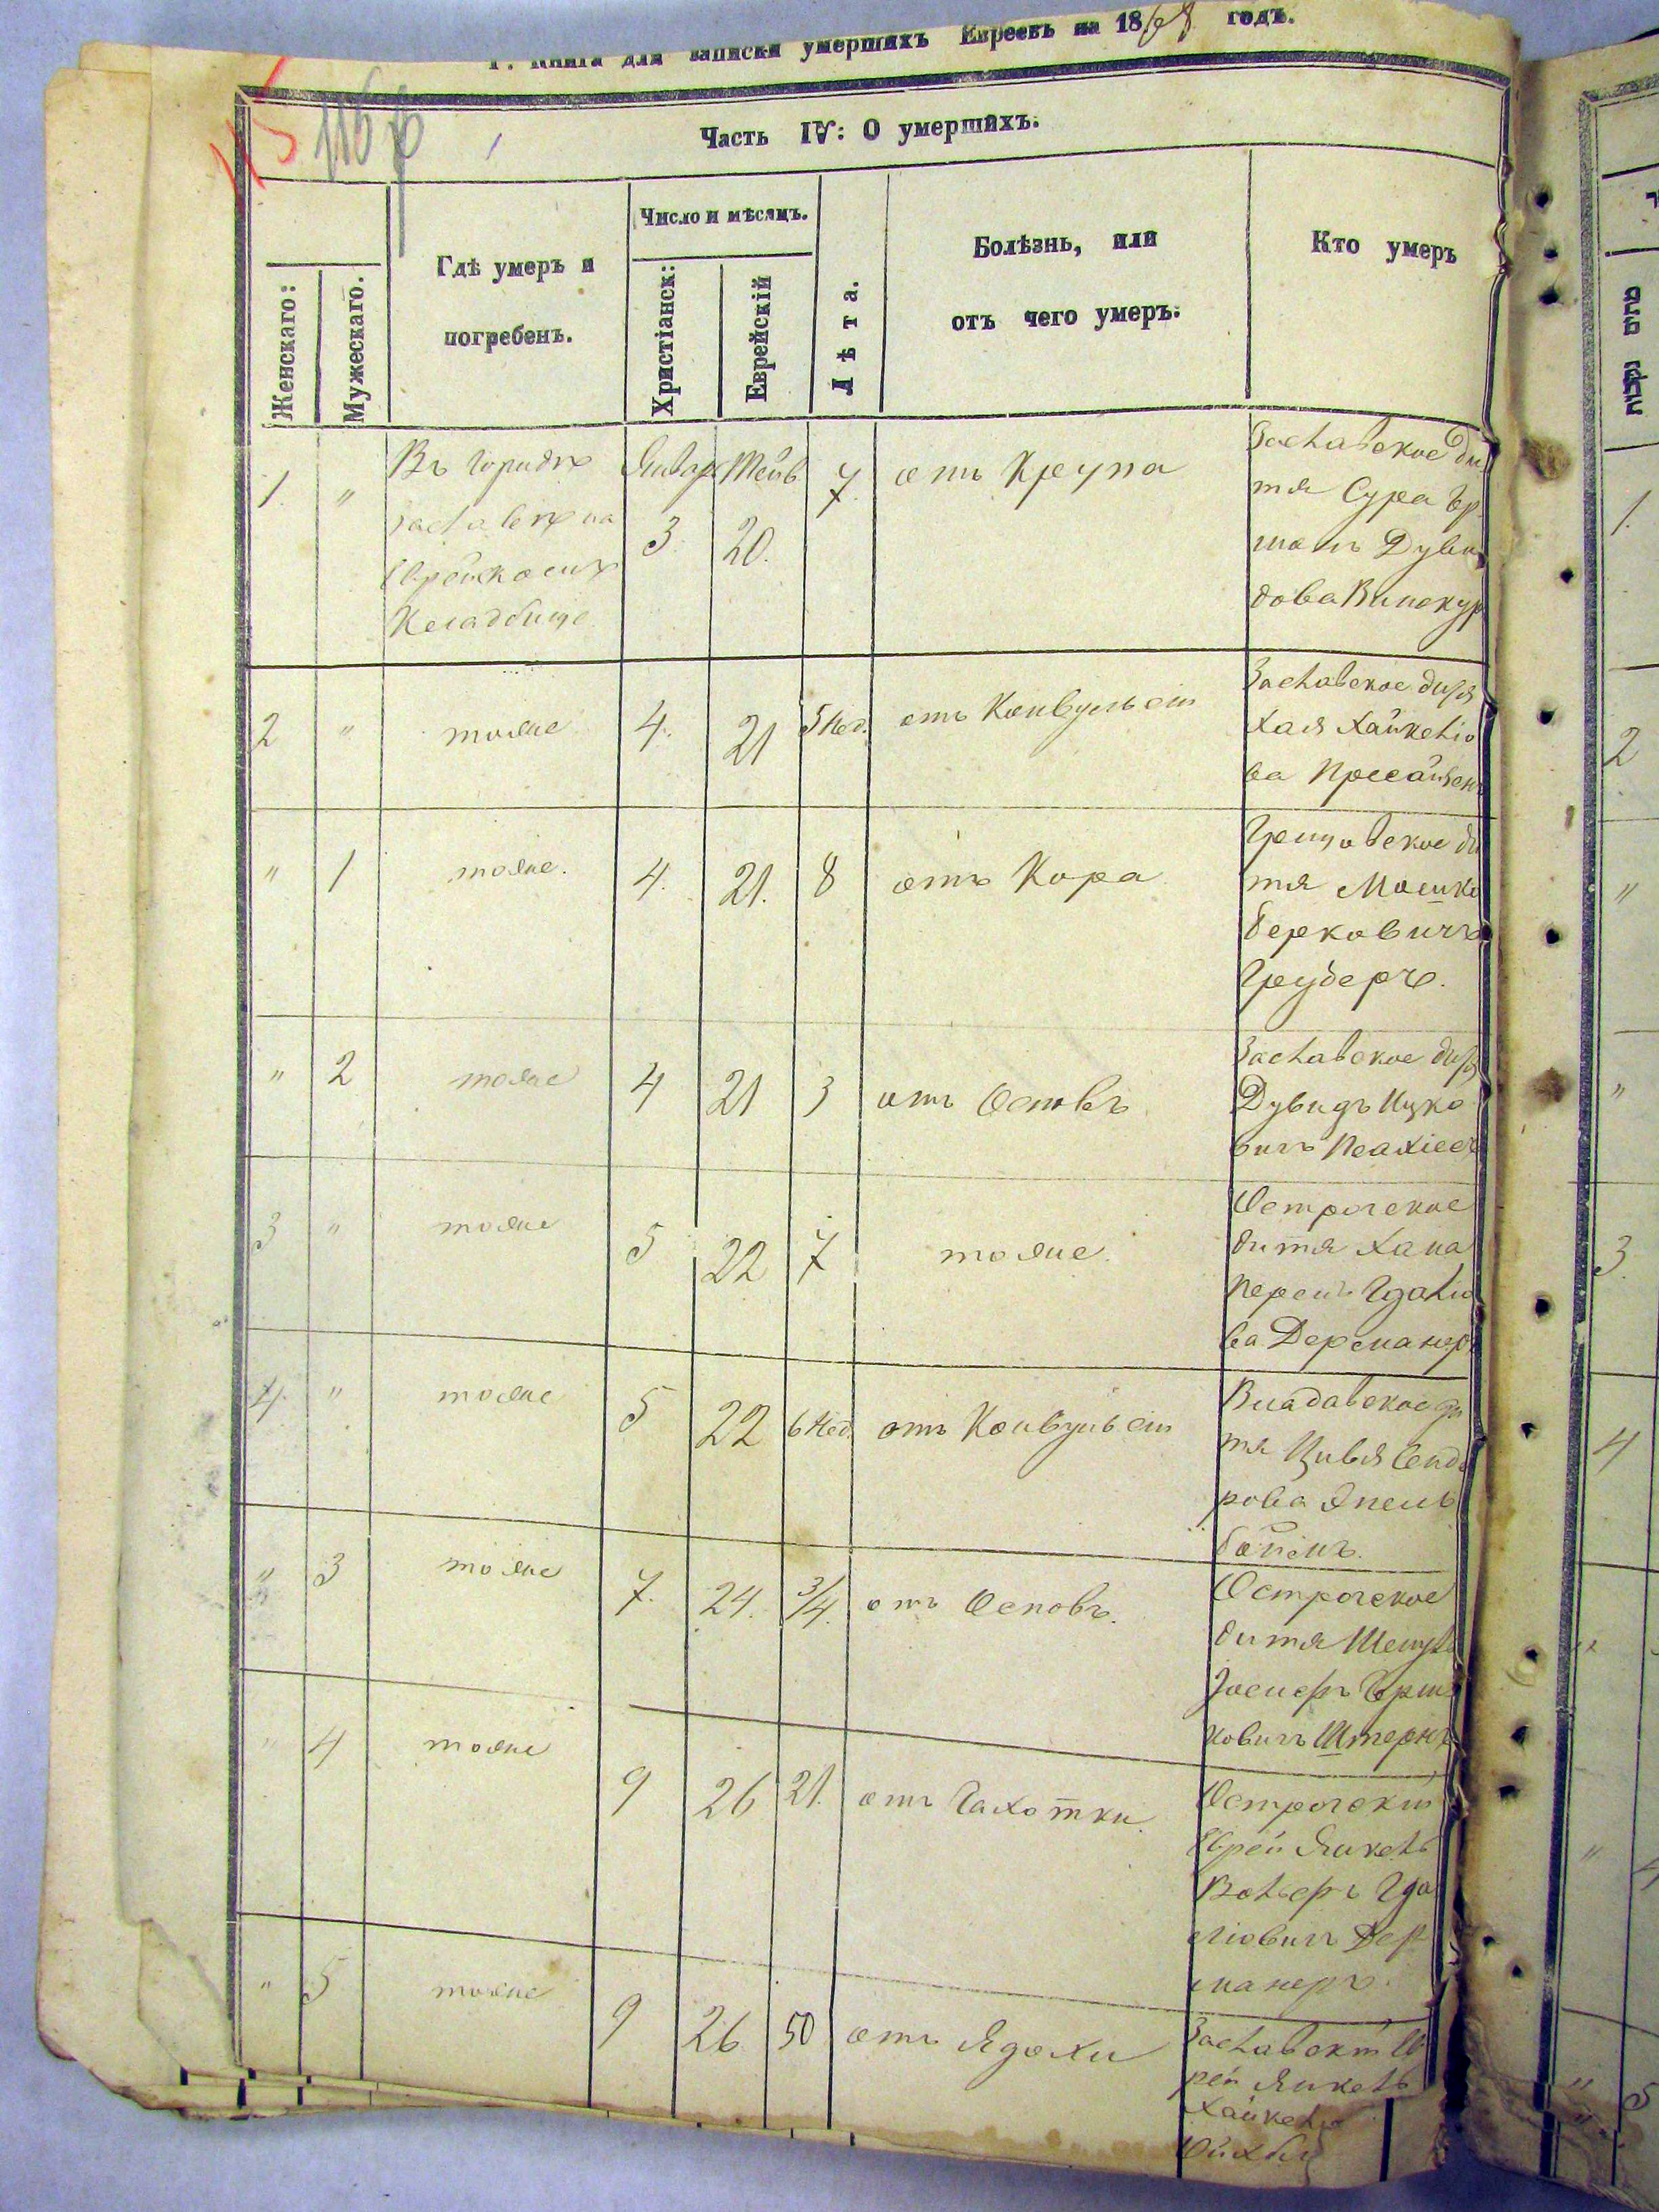 Книга для записки умершихъ Евреевъ на 18 годъ.
115
116
Часть IV: О умершихъ.
Женскаго:
Мужескаго.
Гдѣ умеръ и
погребенъ.
Число и мѣсяцъ.
Христіанск:
Еврейскій
Лѣта.
Болѣзнь, или
отъ чего умеръ.
Кто умеръ
1.
"
Въ городѣ
Заславѣ на
Кладбище
Январ
3.
Тейв
20.
7.
отъ Крупа
Заславское ди
тя Сура Гер
шонъ Дуви
дова Винокур
2
"
тоже
4.
21
5 нед.
отъ Конвульсіи
Заславское дитя
Хая Хайкеліо
ва
"
1
тоже.
4.
21.
8
отъ Кора
Грицовское ди
тя Мошко
Берковичъ
Груберъ.
"
2
тоже
4
21
3
отъ Осповъ
Заславское дитя
Дувидъ Ицко
вичъ
3
"
тоже
5
22
7
тоже.
Острогское
дитя Хана
Перель Гдалio
ва Дерманеръ
4.
"
тоже
5
22
6 нед.
отъ Конвульсіи
Владавское ди
тя Цивя Сенде
рова Эпель
боймъ.
"
3
тоже
7.
24.
3/4.
отъ Осповъ.
Острогское
дитя
Іосифъ Герш
ковичъ Штернъ
"
4
тоже
9
26
21.
отъ Чахотки.
Острогскій
Еврей Янкель
Вольфъ Гда
ліовичъ Дер
манеръ.
"
5
тоже
9
26
50
отъ Ядохи
Заславскій Ев
рей Янкель
Хайкелio
1.
2
"
"
3.
4
"
5